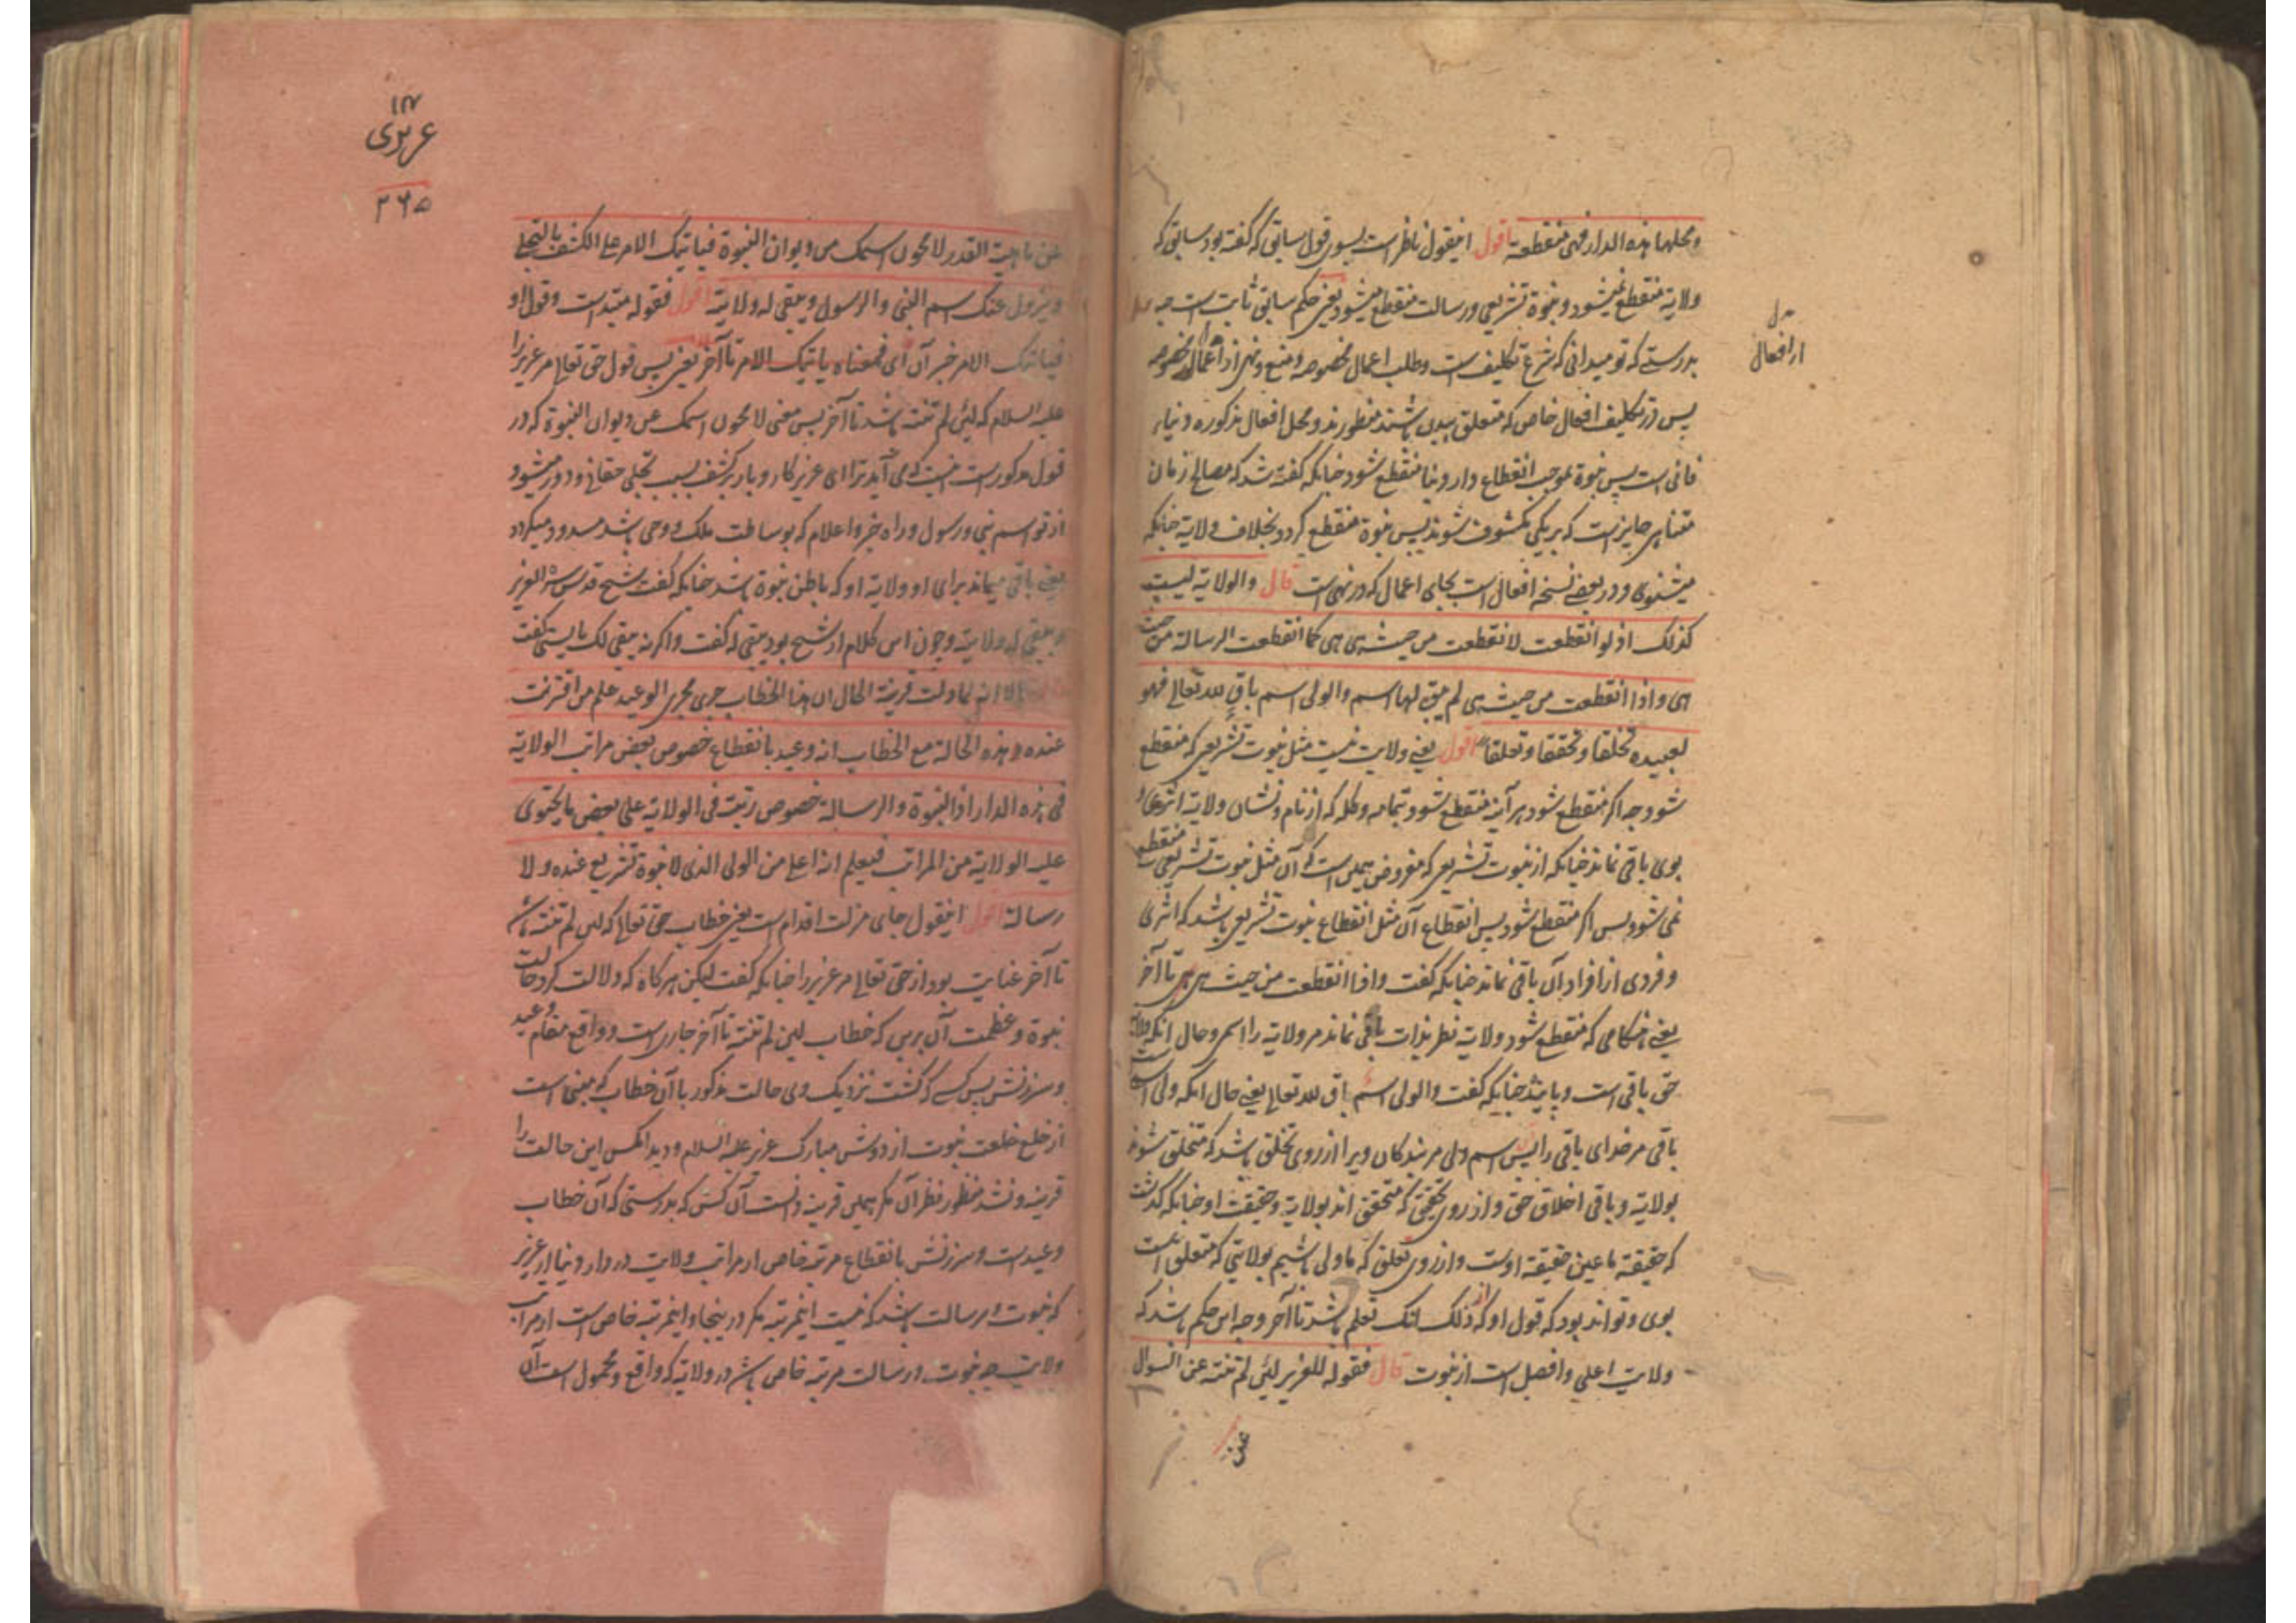 ومحلها هذه الدار فهی منقطعة اقول اینقول ناظر است بسوی قول سابق که گفته بود سابق که
ولایة منقطع نمیشود و نبوة تشریعی و رسالت منقطع میشود یعنی حکم سابق ثابت است چه
بدرستے که تو میدانی که شرع تکلیف است و طلب اعمال مخصوصه و منع و نهی از اعمال مخصوصه
پس در تکلیف افعال خاص که متعلق ببدن باشند منظورند و محل افعال مذکوره دنیاء
فانی است پس نبوة بموجب انقطاع دار دنیا منقطع شود چنانکه گفته شد که مصالح زمان
متناهی جایز است که بریکی مکشوف شوند پس نبوة منقطع گردد بخلاف ولایة چنانکه
میشنوی و در بعضے نسخه افعال است بجای اعمال که در نهی است قال والولایة لیست
کذلک اذ لو انقطعت لانقطعت من حیث هی هی کما انقطعت الرسالة من حیث
هی واذا انقطعت من حیث هی لم یبق لها اسم والولی اسم باق لله تعالی فهو
لعبیده تخلقا وتحققا وتعلقا اقول یعنے ولایت نیست مثل نبوت تشریعی که منقطع
شود چه اگر منقطع شود هر آینه منقطع شود بتمامه وکله که از نام و نشان ولایة اثری و
بوی باقی نماند چنانکه از نبوت تشریعی که مفروض همین است که آن مثل نبوت تشریعی منقطع
نمی شود پس اگر منقطع شود پس انقطاع آن مثل انقطاع نبوت تشریعی باشد که اثری
و فردی از افراد آن باقی نماند چنانکه گفت واذا انقطعت من حیث هی هی تا آخر
یعنے هنگامی که منقطع شود ولایت نظر بذات باقی نماند مر ولایة را اسم و حال آنکه ولایة
حق باقی است و پاینده چنانکه گفت والولی اسم باق لله تعالی یعنے حال آنکه ولی اسم است
باقی مر خدای باقی را پس اسم ولی مر بندگان ویرا از روی تخلق باشد که متخلق شوند
بولایة و باقی اخلاق حق و از روی تحقق که متحقق اند بولایة و حقیقت او چنانکه گذشت
که حقیقة ما عین حقیقة اوست و از روی تعلق که ما ولی باشیم بولایتی که متعلق است
بوی و تواند بود که قول او که ذلک انک تعلم باشد تا آخر وجه این حکم باشد که
ولایت اعلی و افضل است از نبوت قال فقوله للعزیر لئن لم تنته عن السوال
عن
بدل
از افعال
۱۸۷
عزیری
۳۶۵
عن ماهیت القدر لامحون اسمک من دیوان النبوة فیاتیک الامر علی الکشف بالتجلی
ویزول عنک اسم النبی والرسول ویبقی له ولایته اقول فقوله مبتداست و قول او
فیاتیک الامر خبر آن ای فمعناه یاتیک الامر تا آخر یعنی پس قول حق تعالی مر عزیر را
علیه السلام که لئن لم تنته باشد تا آخر پس معنی لامحون اسمک عن دیوان النبوة که در
قول مذکور است اینست که می آید ترا ای عزیر کار و بار بر کشف بسبب تجلی حقانی و دور میشود
از تو اسم نبی و رسول و راه خبر و اعلام که بوساطت ملک و وحی باشد مسدود میگردد
یعنے باقی میماند برای او ولایة او که باطن نبوة باشد چنانکه گفت شیخ قدس سره العزیز
و یبقی له ولایته و چون این کلام از شیخ بود یبقی له گفت و اگر نه یبقی لک بایستی گفت
قال الا انه لما دلت قرینة الحال ان هذا الخطاب جری مجری الوعید علم من اقترنت
عنده هذه الحالة مع الخطاب انه وعید بانقطاع خصوص بعض مراتب الولایة
فی هذه الدار اذ النبوة والرسالة خصوص رتبة فی الولایة علی بعض ما یحتوی
علیه الولایة من المراتب فیعلم انه اعلی من الولی الذی لا نبوة تشریع عنده ولا
رسالة اقول اینقول جای مزلت اقدام است یعنی خطاب حق تعالی که لئن لم تنته باشد
تا آخر عنایت بود از حق تعالی مر عزیر را چنانکه گفت لیکن هرگاه که دلالت کرد حالت
نبوة و عظمت آن برین که خطاب لئن لم تنته تا آخر جاری است و واقع مقام وعید
و سرزنش پس کسے که گشت نزدیک وی حالت مذکور با آن خطاب که مبنی است
از خلع خلعت نبوت از دوش مبارک عزیر علیه السلام و دید آنکس این حالت را
قرینه و نشد منظور نظر آن مگر همین قرینه دانست آن کس که بدرستی که آن خطاب
وعید است و سرزنش بانقطاع مرتبه خاص از مراتب ولایت در دار دنیا از عزیر
که نبوت و رسالت باشد که نیست اینمرتبه مگر در ینجا و اینمرتبه خاص است از مراتب
ولایت چه نبوت و رسالت مرتبه خاص باشد در ولایة که واقع و محمول است آن